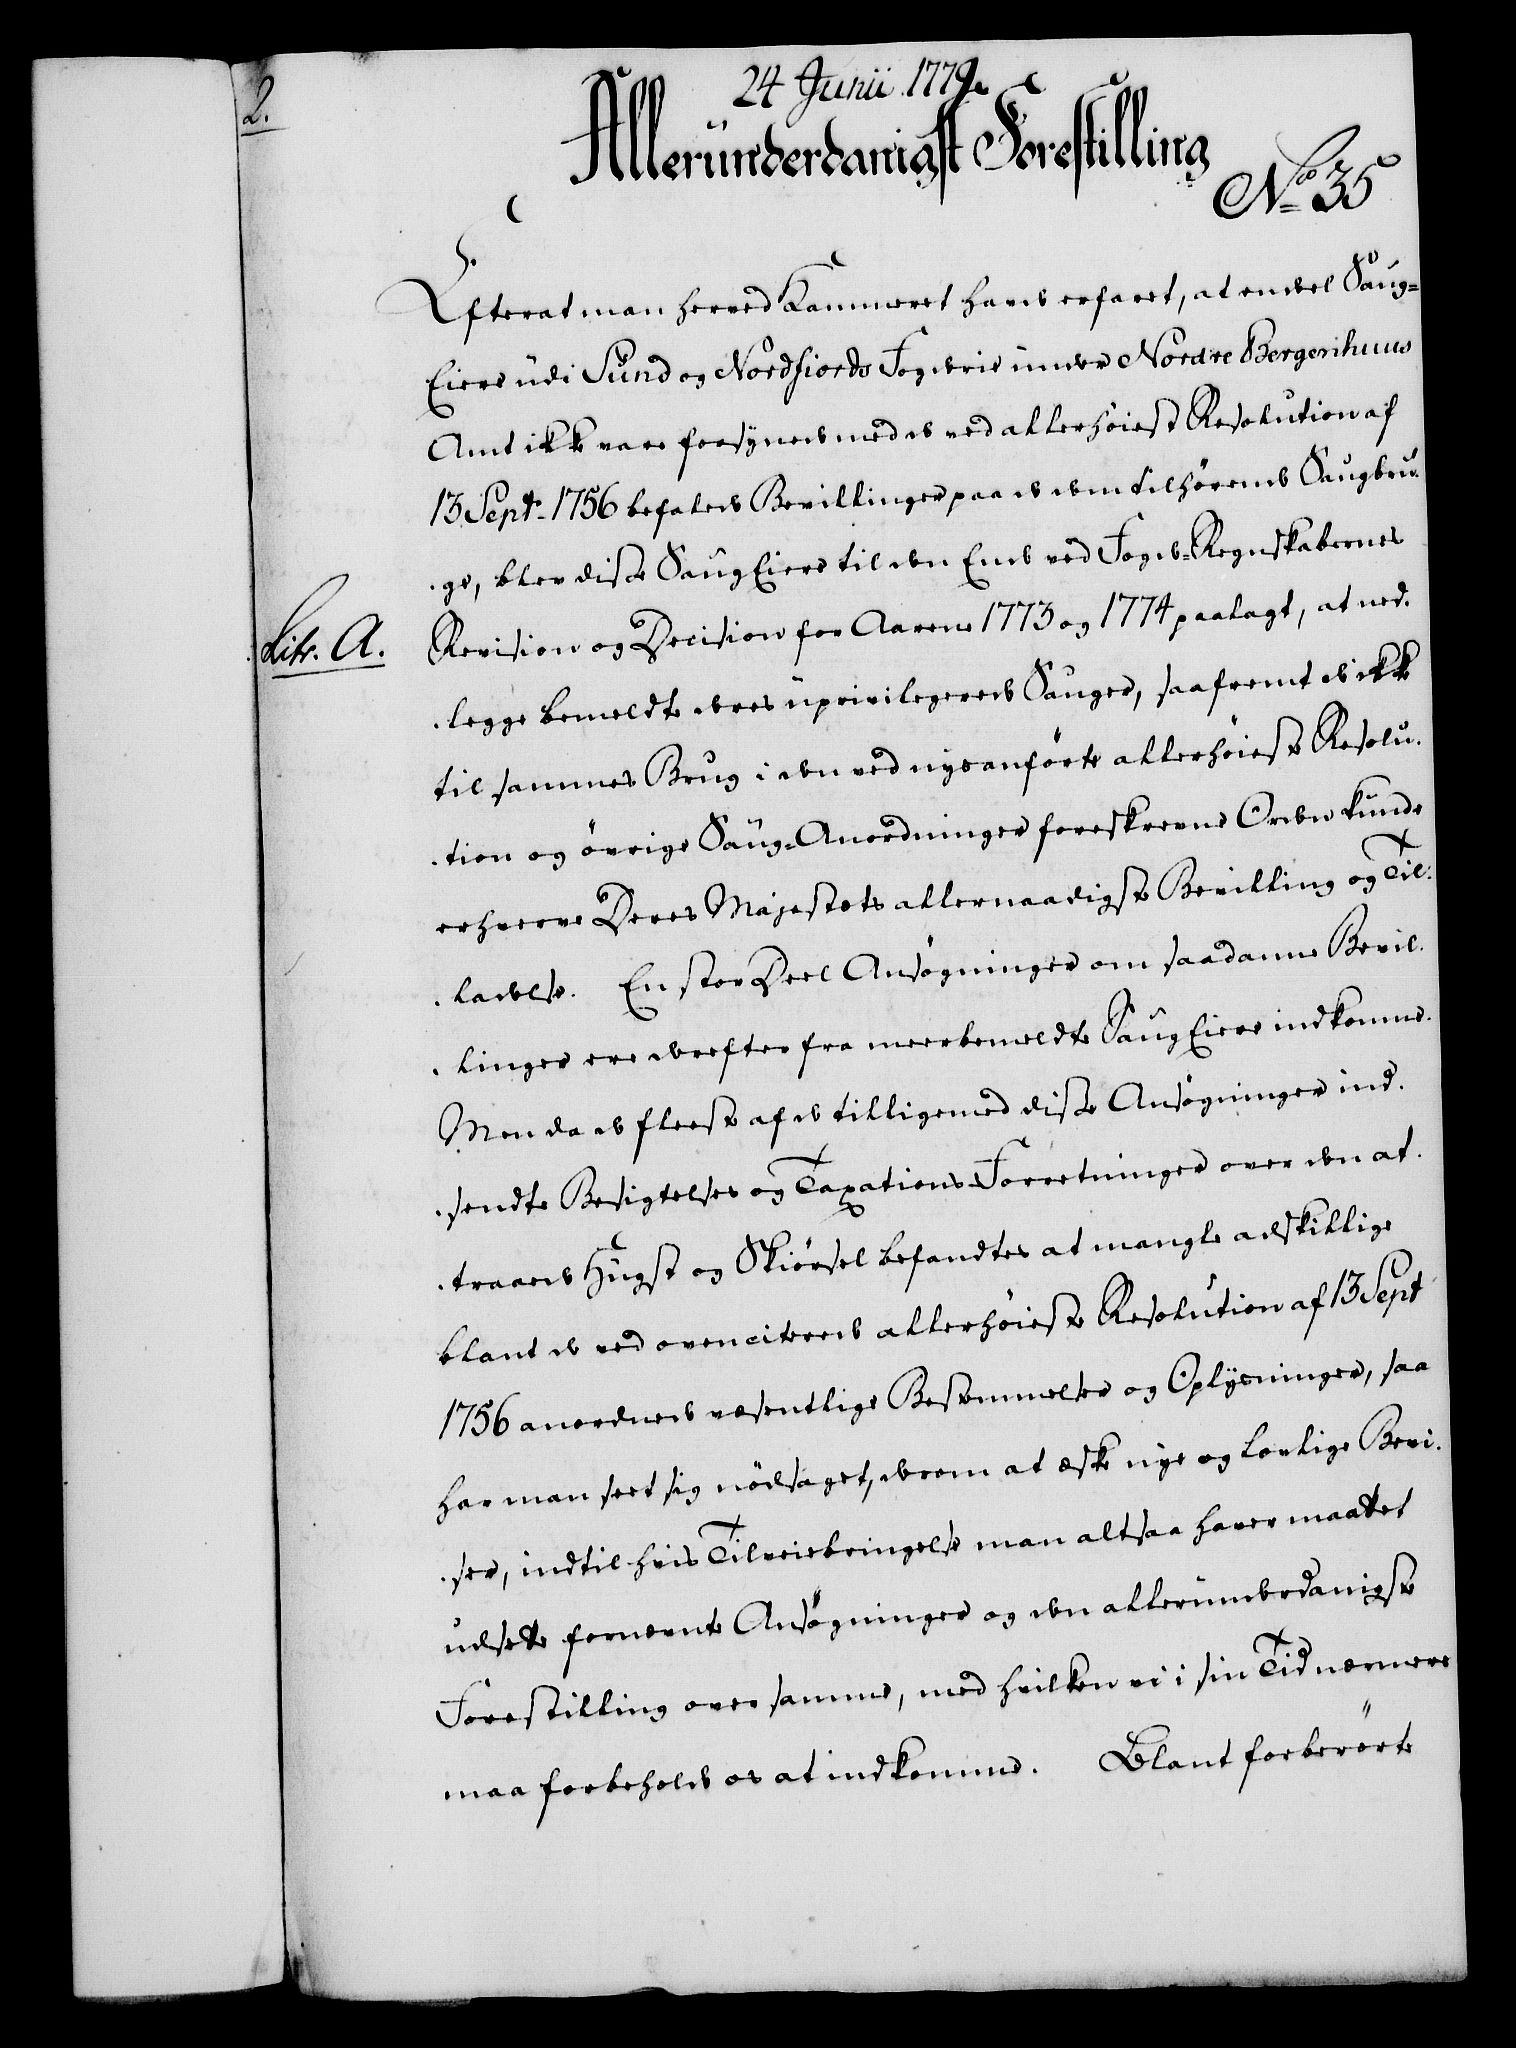 2.
24 Junii 1779.
Alleründerdanigst Forestilling
No 35
Efterat man herved Kammeret havde erfaret, at endeel Saug=
Eiere udi Sund og Nordfiords Fogderie under Nordre Bergenhuus
Amt ikke vare forsynede med de ved allerhöieste Resolution af
13 Septr. 1756 befalede Bevillinger paa de dem tilhørende Saugbru-
ge, blev disse Saug Eiere til den Ende ved Fogde=Regnskabernes
Litr. A.
Revision og Decision for Aarene 1773 og 1774 paalagt, at ned-
legge bemeldte deres uprivilegerede Sauger, saafremt de ikke
til sammes Brug i den ved nysanförte allerhöieste Resolu-
tion og övrige Saug=Anordninger foreskrevne Orden kunde
erhverve Deres Majestæts allernaadigste Bevilling og Til-
ladelse. En stor Deel Ansögninger om saadanne Bevil-
linger ere derefter fra meerbemeldte Saug Eiere indkomne.
Men da de fleeste af de tilligemed disse Ansögninger ind-
sendte Besigtelses og Taxations=Forretninger over den at-
traaede Hugst og Skiörsel befandtes at mangle adskillige
blant de ved ovenciterede allerhöieste Resolution af 13 Sept
1756 anordnede væsentlige Bestemmelser og Oplysninger, saa
har man seet sig nödsaget, derom at æske nye og lovlige Bevi-
ser, indtil hvis Tilveiebringelse man altsaa haver maattet
udsætte fornevnte Ansögninger og den allerunderdanigste
Forestilling over samme, med hvilken vi i sin Tid nærmere
maa forbeholde os at indkomme. Blant forberörte